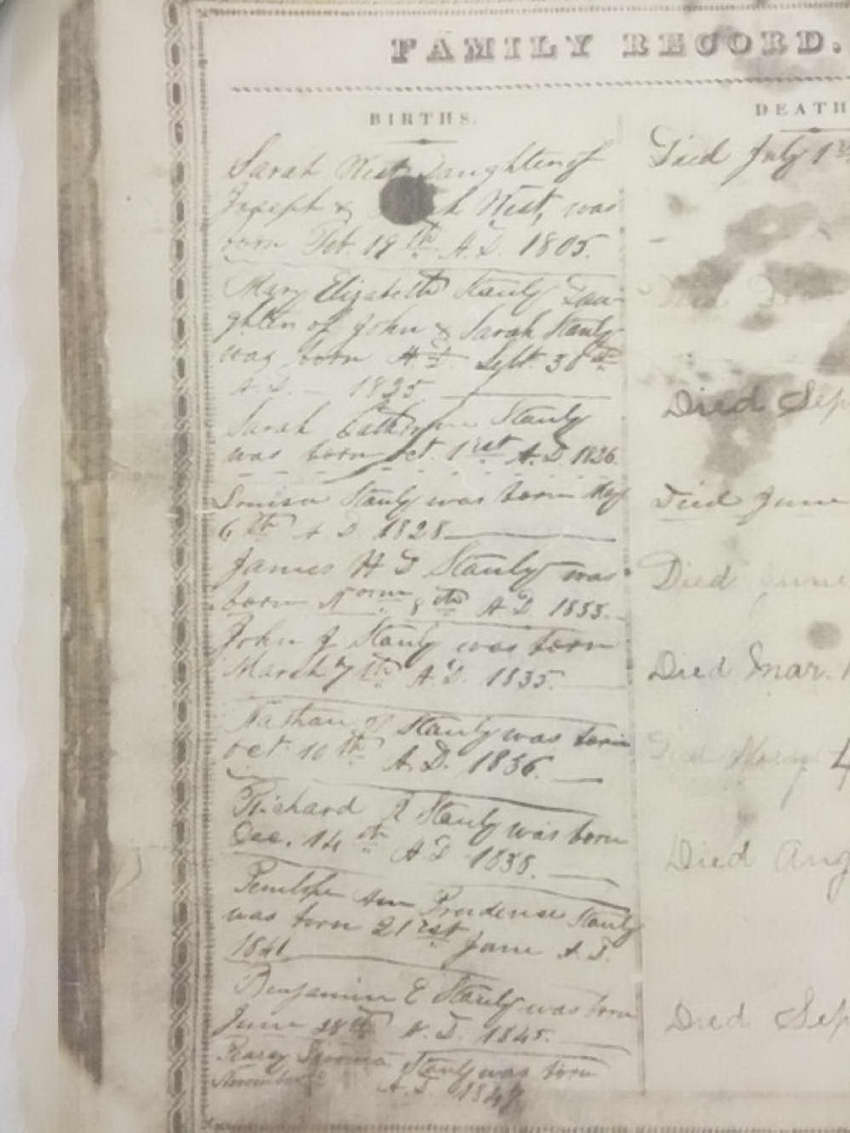 FAMILY RECORD.
BIRTHS.
DEATH
Sarah West Daughter of
Joseph & h West, was
born Feb. 19th A.D. 1805.
Mary Elizabeth Stanly Dau-
ghter of John & Sarah Stanly
was born A.D. Sept. 30th
A.D. 1825
Sarah Catherine Stanly
was born Oct. 1rst A.D 1826.
Louisa Stanly was born
6th A D 1828
James H Stanly was
born 8th A.D 1833.
John J Stanly was born
March 7th A.D. 1835.
Nathan Stanly was born
Oct 10th A.D. 1836.
Richard Stanly was born
Dec. 14th A D 1838.
Penelope Ann Prudense Stanly
was born 21rst June A.D.
1841
Benjamin E Stanly was born
June 28th A.D. 1845.
Stanly was born
November A.D
Died July 1
Died Sep
Died June
Died June
Died Mar. 1
4
Died Aug
Died Sep